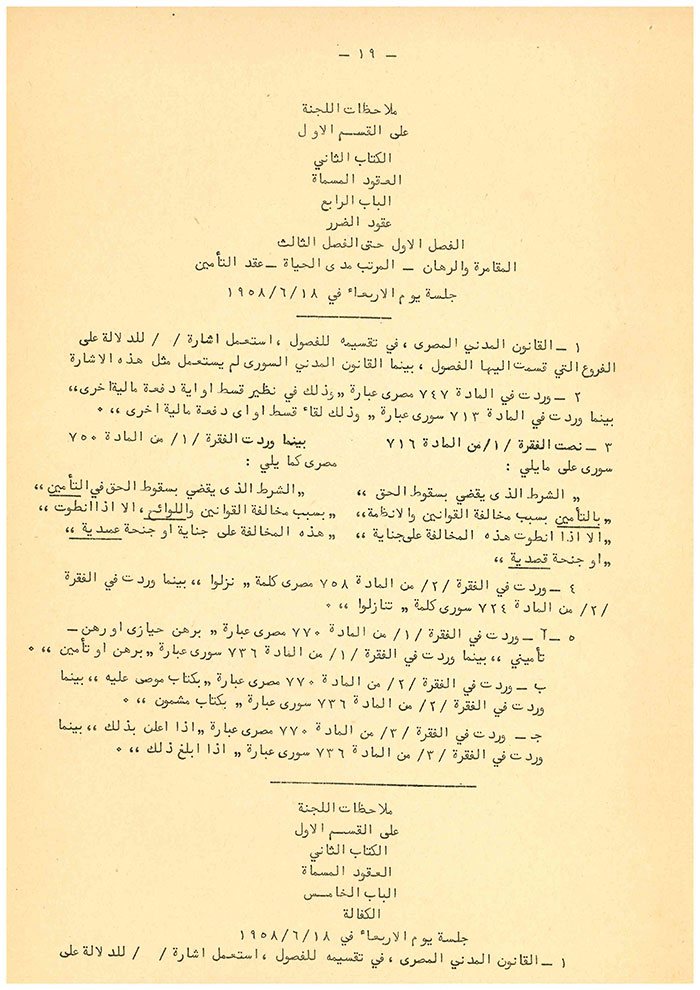 – ١٩ –
ملاحظات اللجنة
على القسم الاول
الكتاب الثاني
العقود المسماة
الباب الرابع
عقود الضرر
الفصل الاول حتى الفصل الثالث
المقامرة والرهان – المرتب مدى الحياة – عقد التأمين
جلسة يوم الاربعاء في ١٩٥٨/٦/١٨
١ – القانون المدني المصرى ، في تقسيمه للفصول ، استعمل اشارة / / للدلالة على
الفروع التي قسمت اليها الفصول ، بينما القانون المدني السورى لم يستعمل مثل هذه الاشارة
٢ – وردت في المادة ٧٤٧ مصرى عبارة „ وذلك في نظير قسط او اية دفعة مالية اخرى ،،
بينما وردت في المادة ٧١٣ سورى عبارة „ وذلك لقاء قسط او اى دفعة مالية اخرى ،، ٠
٣ – نصت الفقرة /١/ من المادة ٧١٦ بينما وردت الفقرة /١/ من المادة ٧٥٠
سورى على مايلي : مصرى كما يلي :
„ الشرط الذى يقضي بسقوط الحق ،، „ الشرط الذى يقضي بسقوط الحق في التأمين ،،
„ بالتأمين بسبب مخالفة القوانين والانظمة ،، „ بسبب مخالفة القوانين واللوائح ، الا اذا انطوت ،،
„ الا اذا انطوت هذه المخالفة على جناية ،، „ هذه المخالفة على جناية او جنحة عمدية ،،
„ او جنحة قصدية ،،
٤ – وردت في الفقرة /٢/ من المادة ٧٥٨ مصرى كلمة „ نزلوا ،، بينما وردت في الفقرة
/٢/ من المادة ٧٢٤ سورى كلمة „ تنازلوا ،، ٠
٥ – آ – وردت في الفقرة /١/ من المادة ٧٧٠ مصرى عبارة „ برهن حيازى او رهن –
تأميني ،، بينما وردت في الفقرة /١/ من المادة ٧٣٦ سورى عبارة „ برهن او تأمين ،، ٠
ب – وردت في الفقرة /٢/ من المادة ٧٧٠ مصرى عبارة „ بكتاب موصى عليه ،، بينما
وردت في الفقرة /٢/ من المادة ٧٣٦ سورى عبارة „ بكتاب مضمون ،، ٠
جـ – وردت في الفقرة /٣/ من المادة ٧٧٠ مصرى عبارة „ اذا اعلن بذلك ،، بينما
وردت في الفقرة /٣/ من المادة ٧٣٦ سورى عبارة „ اذا ابلغ ذلك ،، ٠
ملاحظات اللجنة
على القسم الاول
الكتاب الثاني
العقود المسماة
الباب الخامس
الكفالة
جلسة يوم الاربعاء في ١٩٥٨/٦/١٨
١ – القانون المدني المصرى ، في تقسيمه للفصول ، استعمل اشارة / / للدلالة على